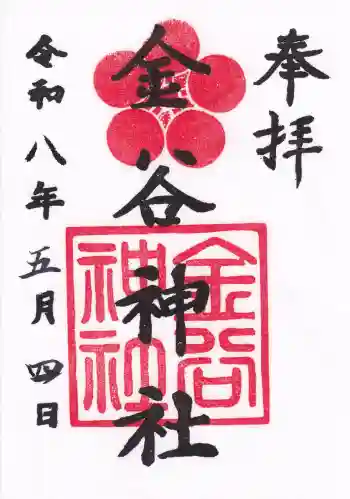 奉拝
金谷神社
金谷
神社
令和八年五月四日